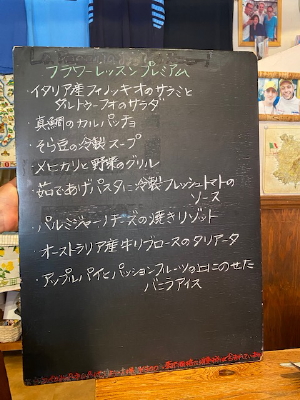 フラワーレッスンプレミアム
・イタリア産フィノッキオのサラミと
ダルトゥーフオのサラダ
・真鯛のカルパッチョ
・そら豆の冷製スープ
・メヒカリと野菜のグリル
・茹であげパスタに冷製フレッシュトマトの
ソース
・パルミジャーノチーズの焼きリゾット
・オーストラリア産牛リブロースのタリアータ
・アップルパイとパッションフルーツの上にのせた
バニラアイス